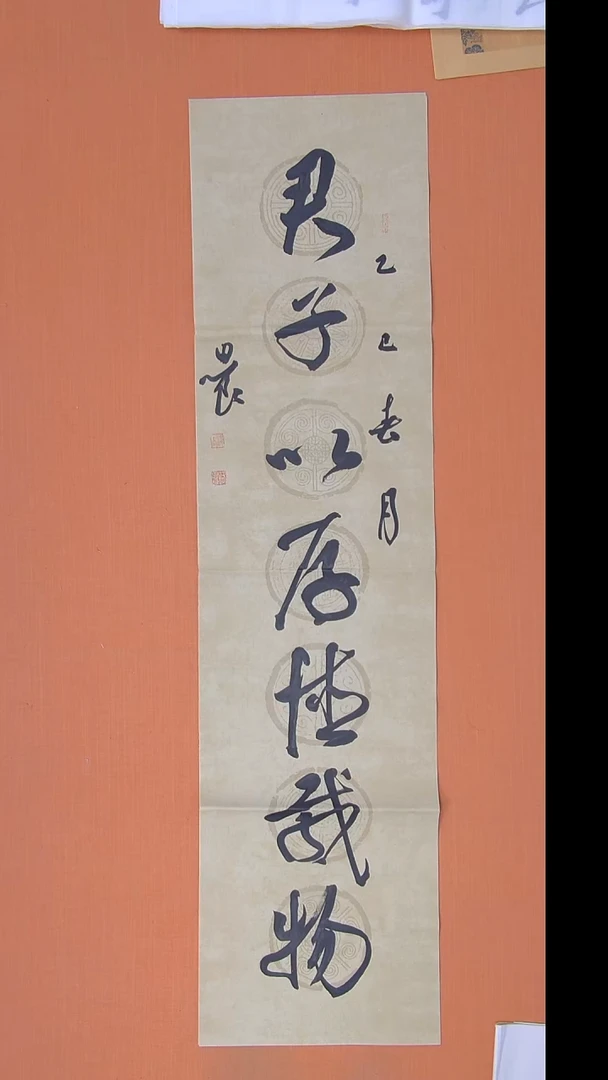 乙巳春月
君子以厚德载物